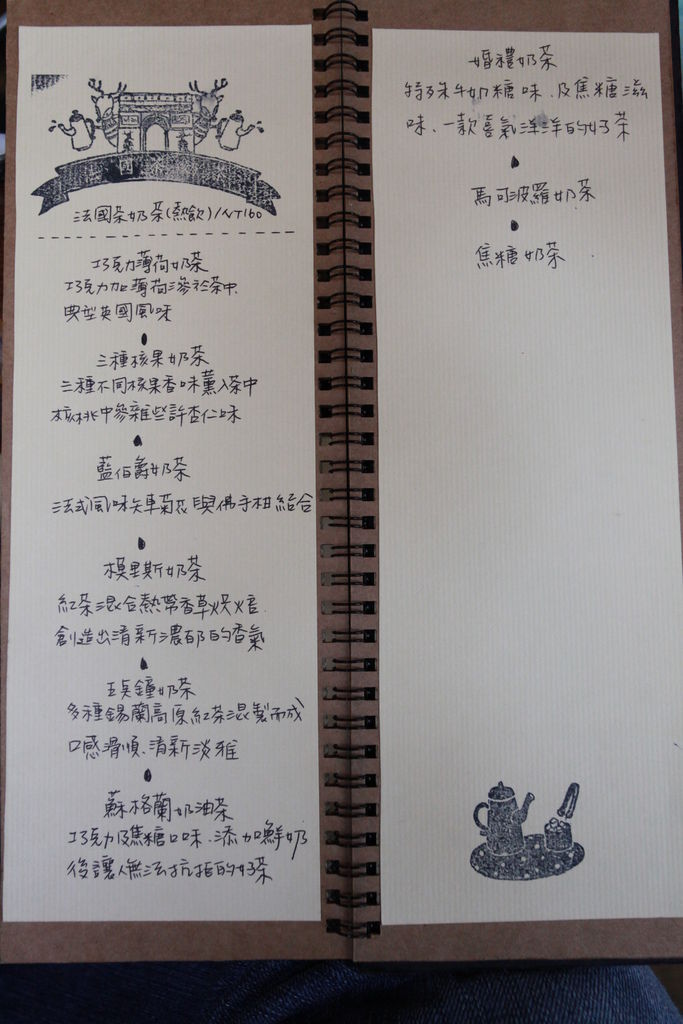 法國茶奶茶(熱飲)/NT160
巧克力薄荷奶茶
巧克力加薄荷滲於茶中
典型英國風味
三種核果奶茶
三種不同核果香味薰入茶中
核桃中參雜些許杏仁味
藍伯爵奶茶
法式風味矢車菊花與佛手柑結合
模里斯奶茶
紅茶混合熱帶香草烘焙
創造出清新濃郁的香氣
五点鐘奶茶
多種錫蘭高原紅茶混製而成
口感滑順.清新淡雅
蘇格蘭奶油茶
巧克力及焦糖口味.添加鮮奶
後讓人無法抗拒的好茶
婚禮奶茶
特殊牛奶糖味.及焦糖滋
味.一款喜氣洋洋的好茶
馬可波羅奶茶
焦糖奶茶